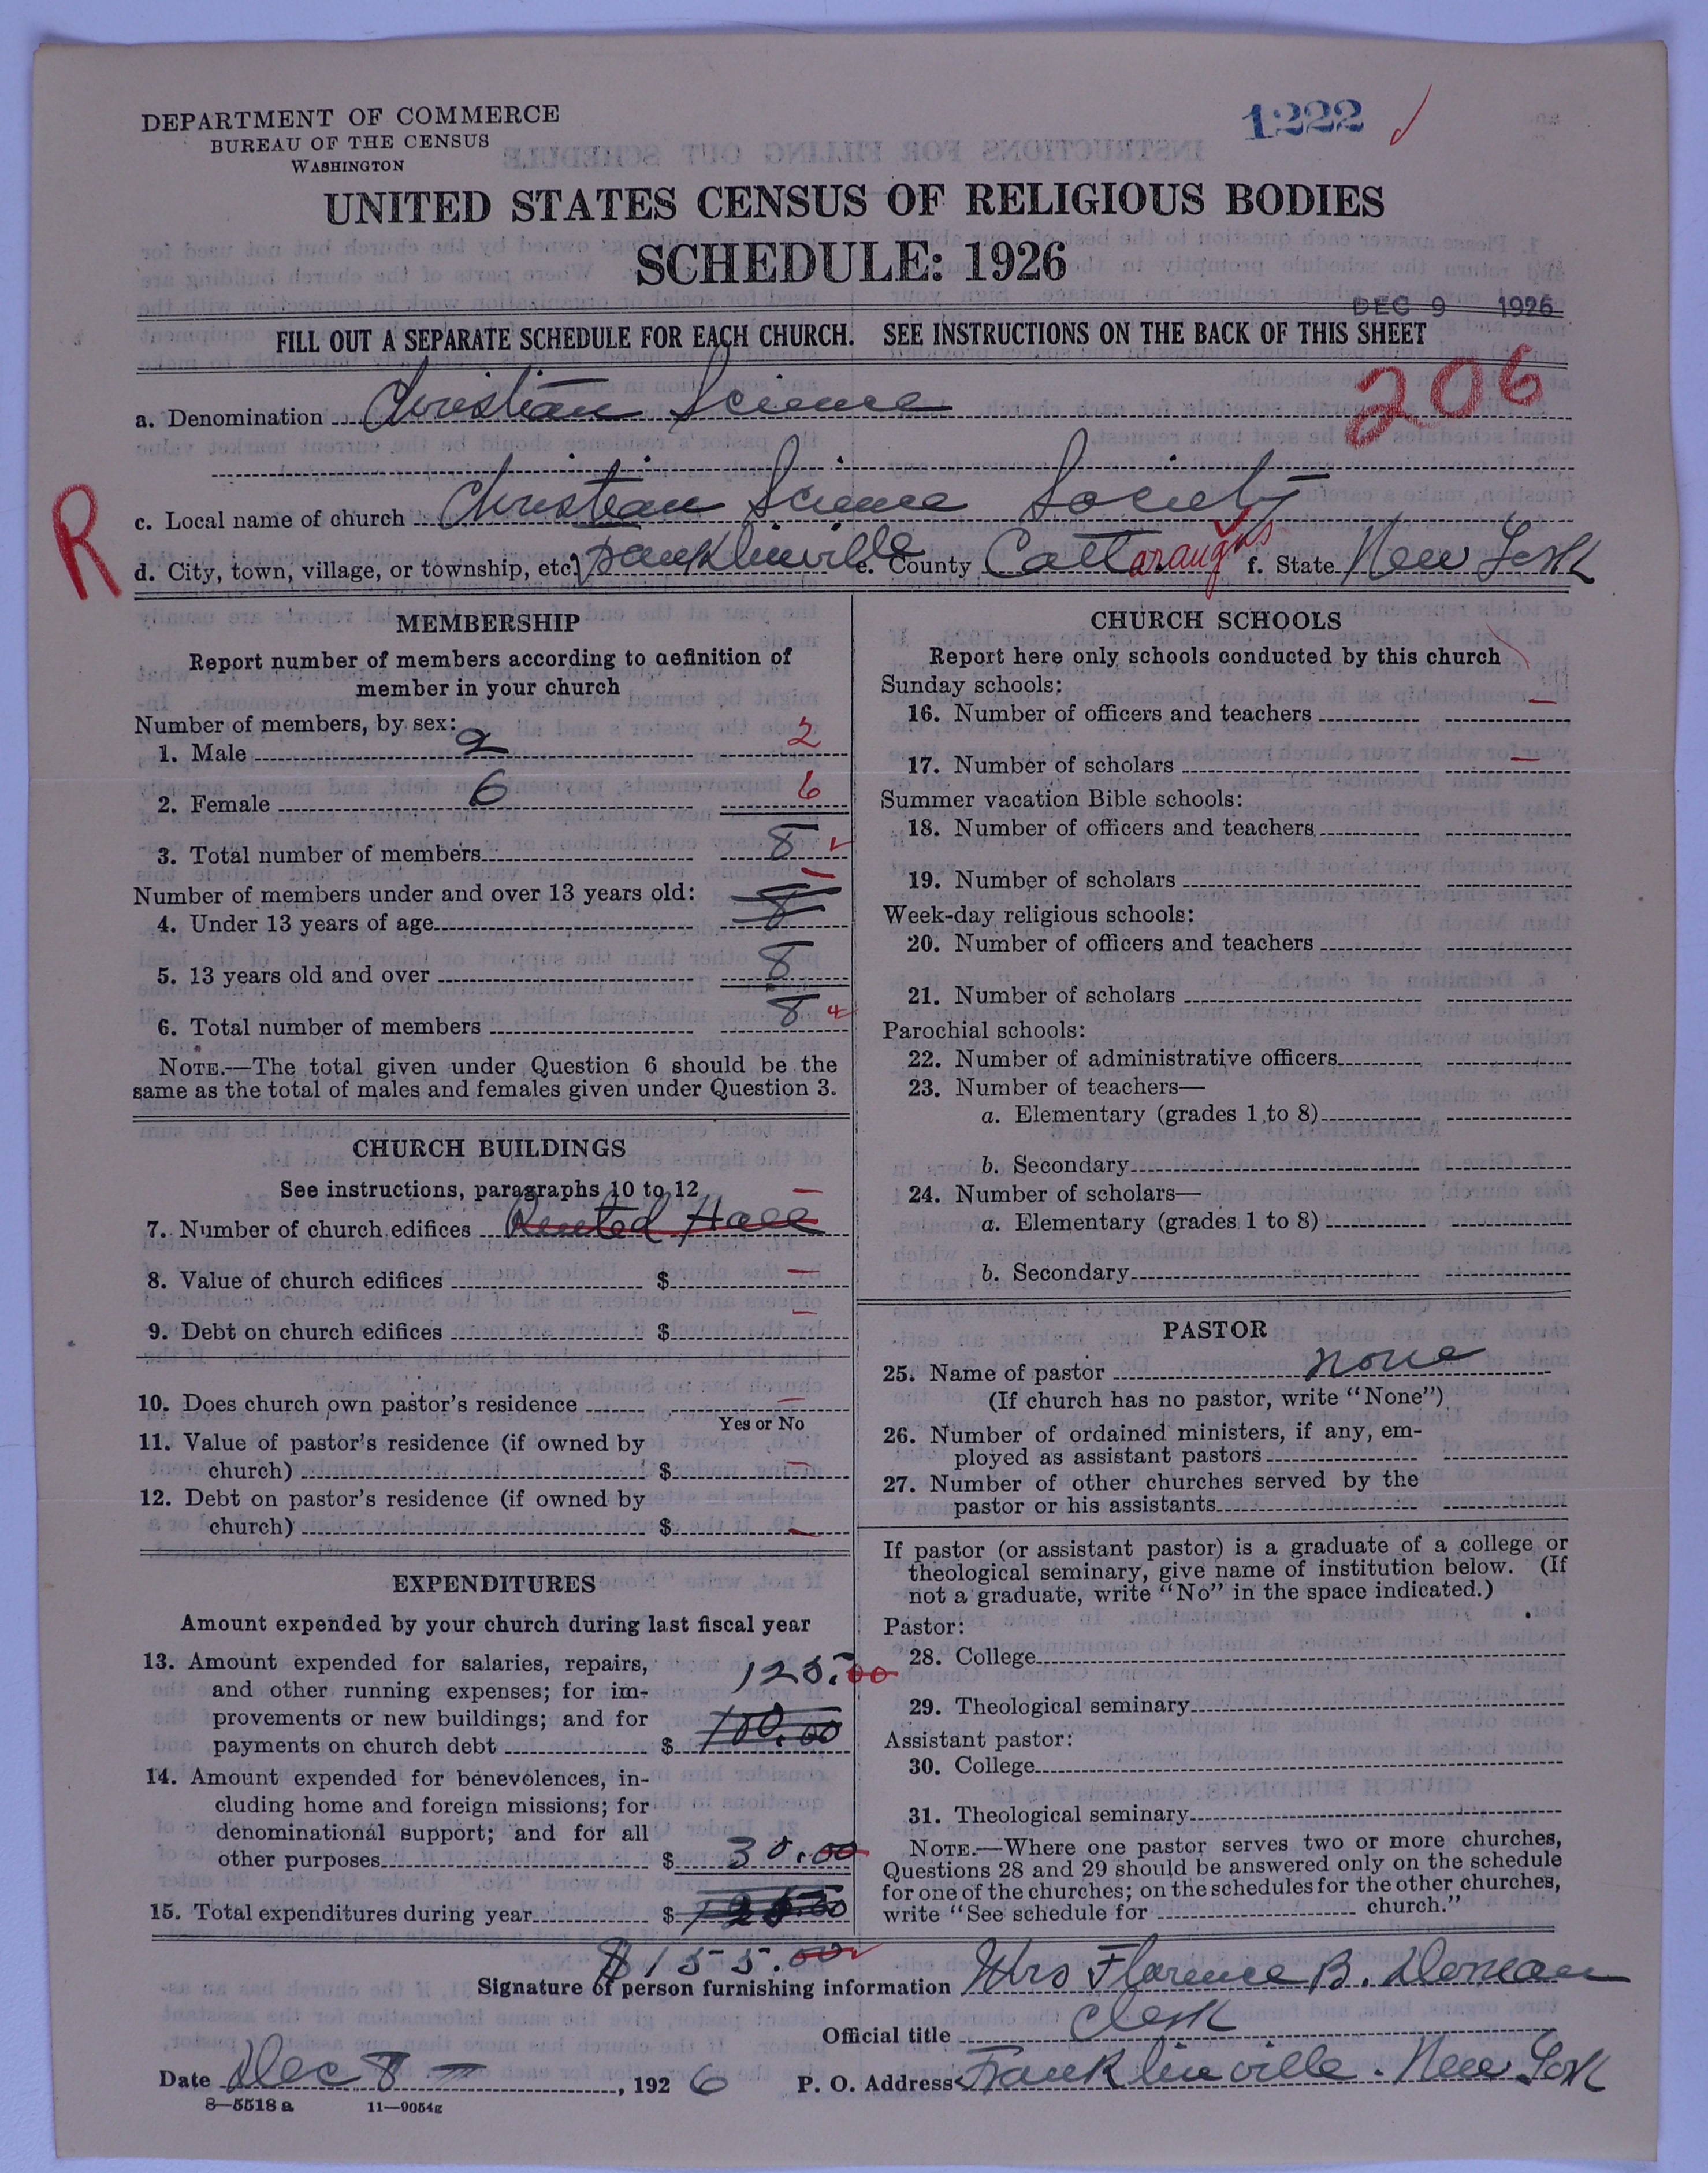 DEPARTMENT OF COMMERCE
BUREAU OF THE CENSUS
WASHINGTON
1222
UNITED STATES CENSUS OF RELIGIOUS BODIES
SCHEDULE: 1926
DEC 9 1926
FILL OUT A SEPARATE SCHEDULE FOR EACH CHURCH. SEE INSTRUCTIONS ON THE BACK OF THIS SHEET
206
a. Denomination Christian Science
R
c. Local name of church Christian Science Society
d. City, town, village, or township, etc. Franklinville e. County Cattaraugus f. State New York
MEMBERSHIP
Report number of members according to definition of
member in your church
Number of members, by sex:
1. Male 2 2
2. Female 6 6
3. Total number of members 8
Number of members under and over 13 years old:
4. Under 13 years of age 8
5. 13 years old and over 8
6. Total number of members 8
NOTE.—The total given under Question 6 should be the
same as the total of males and females given under Question 3.
CHURCH BUILDINGS
See instructions, paragraphs 10 to 12
7. Number of church edifices Rented Hall
8. Value of church edifices $
9. Debt on church edifices $
10. Does church own pastor's residence
Yes or No
11. Value of pastor's residence (if owned by
church) $
12. Debt on pastor's residence (if owned by
church) $
EXPENDITURES
Amount expended by your church during last fiscal year
13. Amount expended for salaries, repairs, 125.00
and other running expenses; for im-
provements or new buildings; and for
payments on church debt $ 100.00
14. Amount expended for benevolences, in-
cluding home and foreign missions; for
denominational support; and for all
other purposes $ 30.00
15. Total expenditures during year $
$155.00
CHURCH SCHOOLS
Report here only schools conducted by this church
Sunday schools:
16. Number of officers and teachers —
17. Number of scholars —
Summer vacation Bible schools:
18. Number of officers and teachers
19. Number of scholars
Week-day religious schools:
20. Number of officers and teachers
21. Number of scholars
Parochial schools:
22. Number of administrative officers
23. Number of teachers—
a. Elementary (grades 1 to 8)
b. Secondary
24. Number of scholars—
a. Elementary (grades 1 to 8)
b. Secondary
PASTOR
25. Name of pastor none
(If church has no pastor, write "None")
26. Number of ordained ministers, if any, em-
ployed as assistant pastors
27. Number of other churches served by the
pastor or his assistants
If pastor (or assistant pastor) is a graduate of a college or
theological seminary, give name of institution below. (If
not a graduate, write "No" in the space indicated.)
Pastor:
28. College
29. Theological seminary
Assistant pastor:
30. College
31. Theological seminary
NOTE.—Where one pastor serves two or more churches,
Questions 28 and 29 should be answered only on the schedule
for one of the churches; on the schedules for the other churches,
write "See schedule for church."
Signature of person furnishing information Mrs Florence B.
Official title Clerk
Date Dec 8 — , 1926 P. O. Address Franklinville. New York
8—5518 a 11—9054g